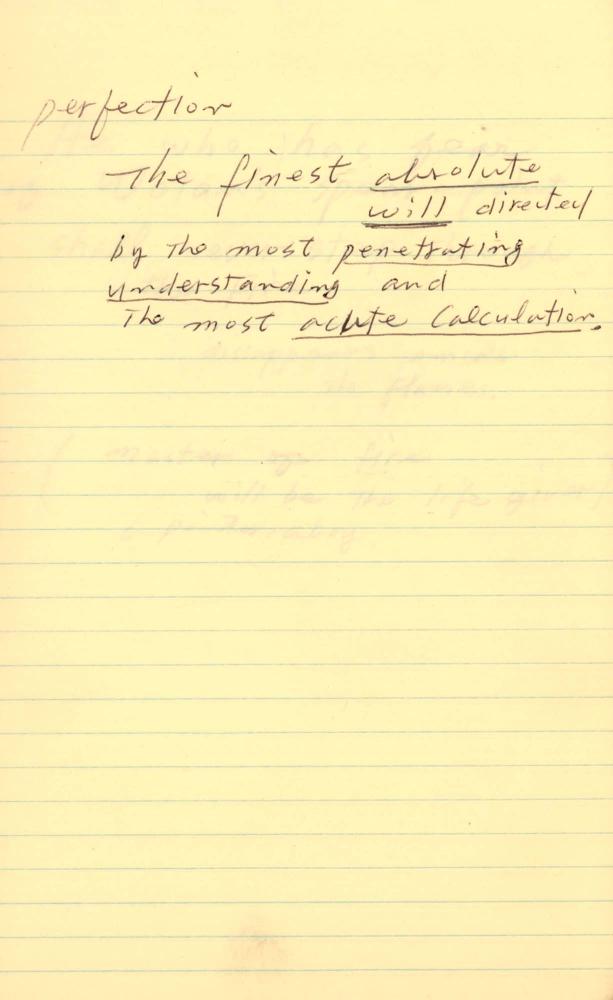 perfection
The finest absolute
will directed
by the most penetrating
understanding and
The most acute Calculation.
master
will be the life giver